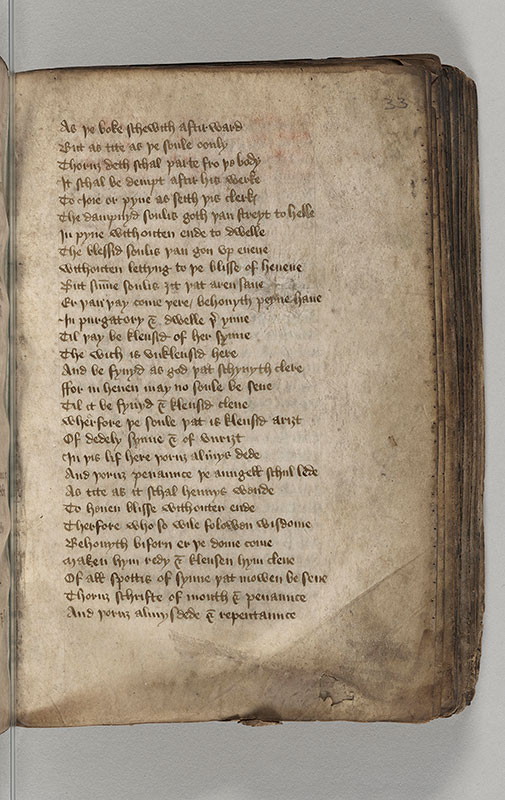 33
As þe boke schewith aftirward
But as tite as þe soule oonly
Thoruȝ deth schal parte fro þs body
It schal be dempt aftir his werke
To ioie or pyne as seith þis clerk
The dampnyd soulis goth þan streyt to helle
In pyne withouten ende to dwelle
The blessid soulis þan gon vp euene
withouten lettyng to þe blisse of heuene
But su̅me soulis ȝit þat aren saue
Er þan þay come þere / behouyth peyne haue
In purgatory & dwelle þͬ ynne
Til þay be klensid of her synne
The wich is vnklensid here
And be fynyd as god þat schynyth clere
ffor in heuen may no soule be sene
Til it be fynyd & klensid clene
wherfore þe soule þat is klensid ariȝt
Of dedely synne & of vnriȝt
In þis lif here þoruȝ almys dede
And þoruȝ penaunce þe aungell schul lede
As tite as it schal hennys wende
To heuen blisse withouten ende
Therfore who so wile folowen wisdome
Behouyth biforn er þe dome come
Maken hym redy & klensen hym clene
Of all spottis of synne þat mowen be sene
Thoruȝ schrifte of mouth & penaunce
And þoruȝ almysdede & repentaunce